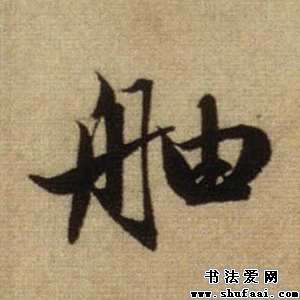 舳
书法爱网
www.shufaai.com